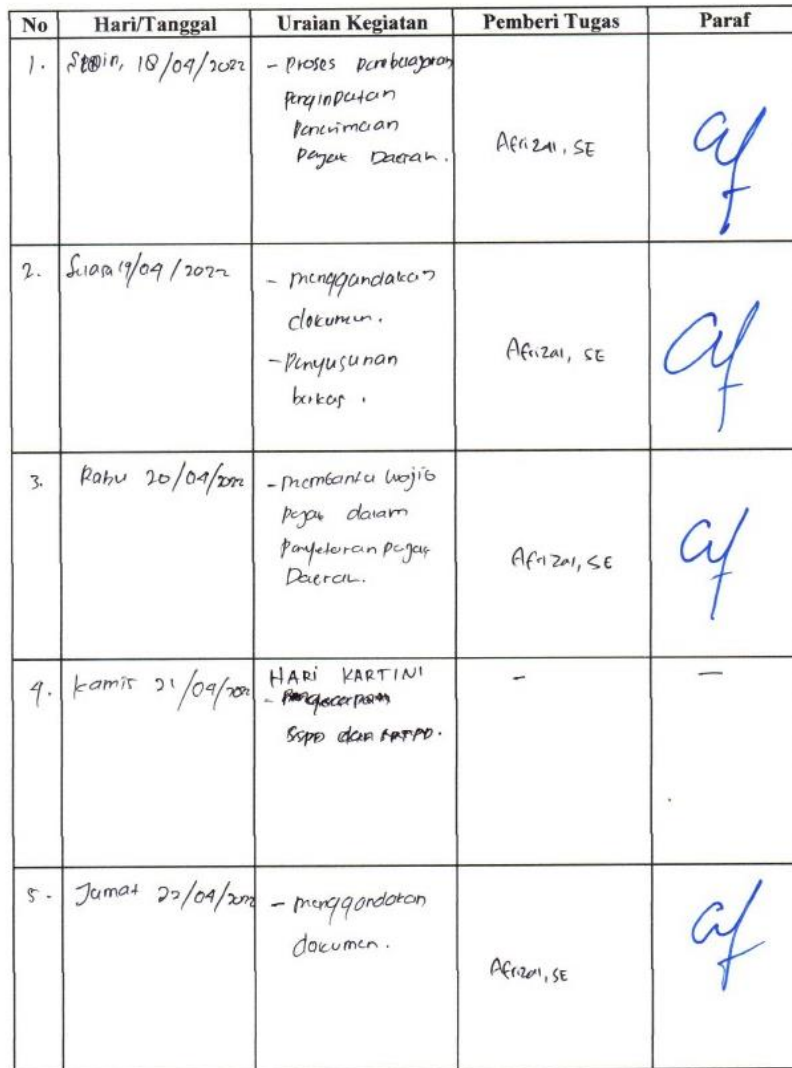 No Hari/Tanggal Uraian Kegiatan Pemberi Tugas Paraf
1. Senin, 18/04/2022 - Proses Pembelajaran
Penginputan
Penerimaan
Pajak Daerah.
Afrizal, SE
2. Selasa 19/04/2022 - menggandakan
dokumen.
- Penyusunan
berkas.
Afrizal, SE
3. Rabu 20/04/2022 - membantu wajib
pajak dalam
Penyetoran pajak
Daerah.
Afrizal, SE
4. Kamis 21/04/2022 HARI KARTINI - -
SSPD dan
5. Jumat 22/04/2022 - menggandakan
dokumen.
Afrizal, SE